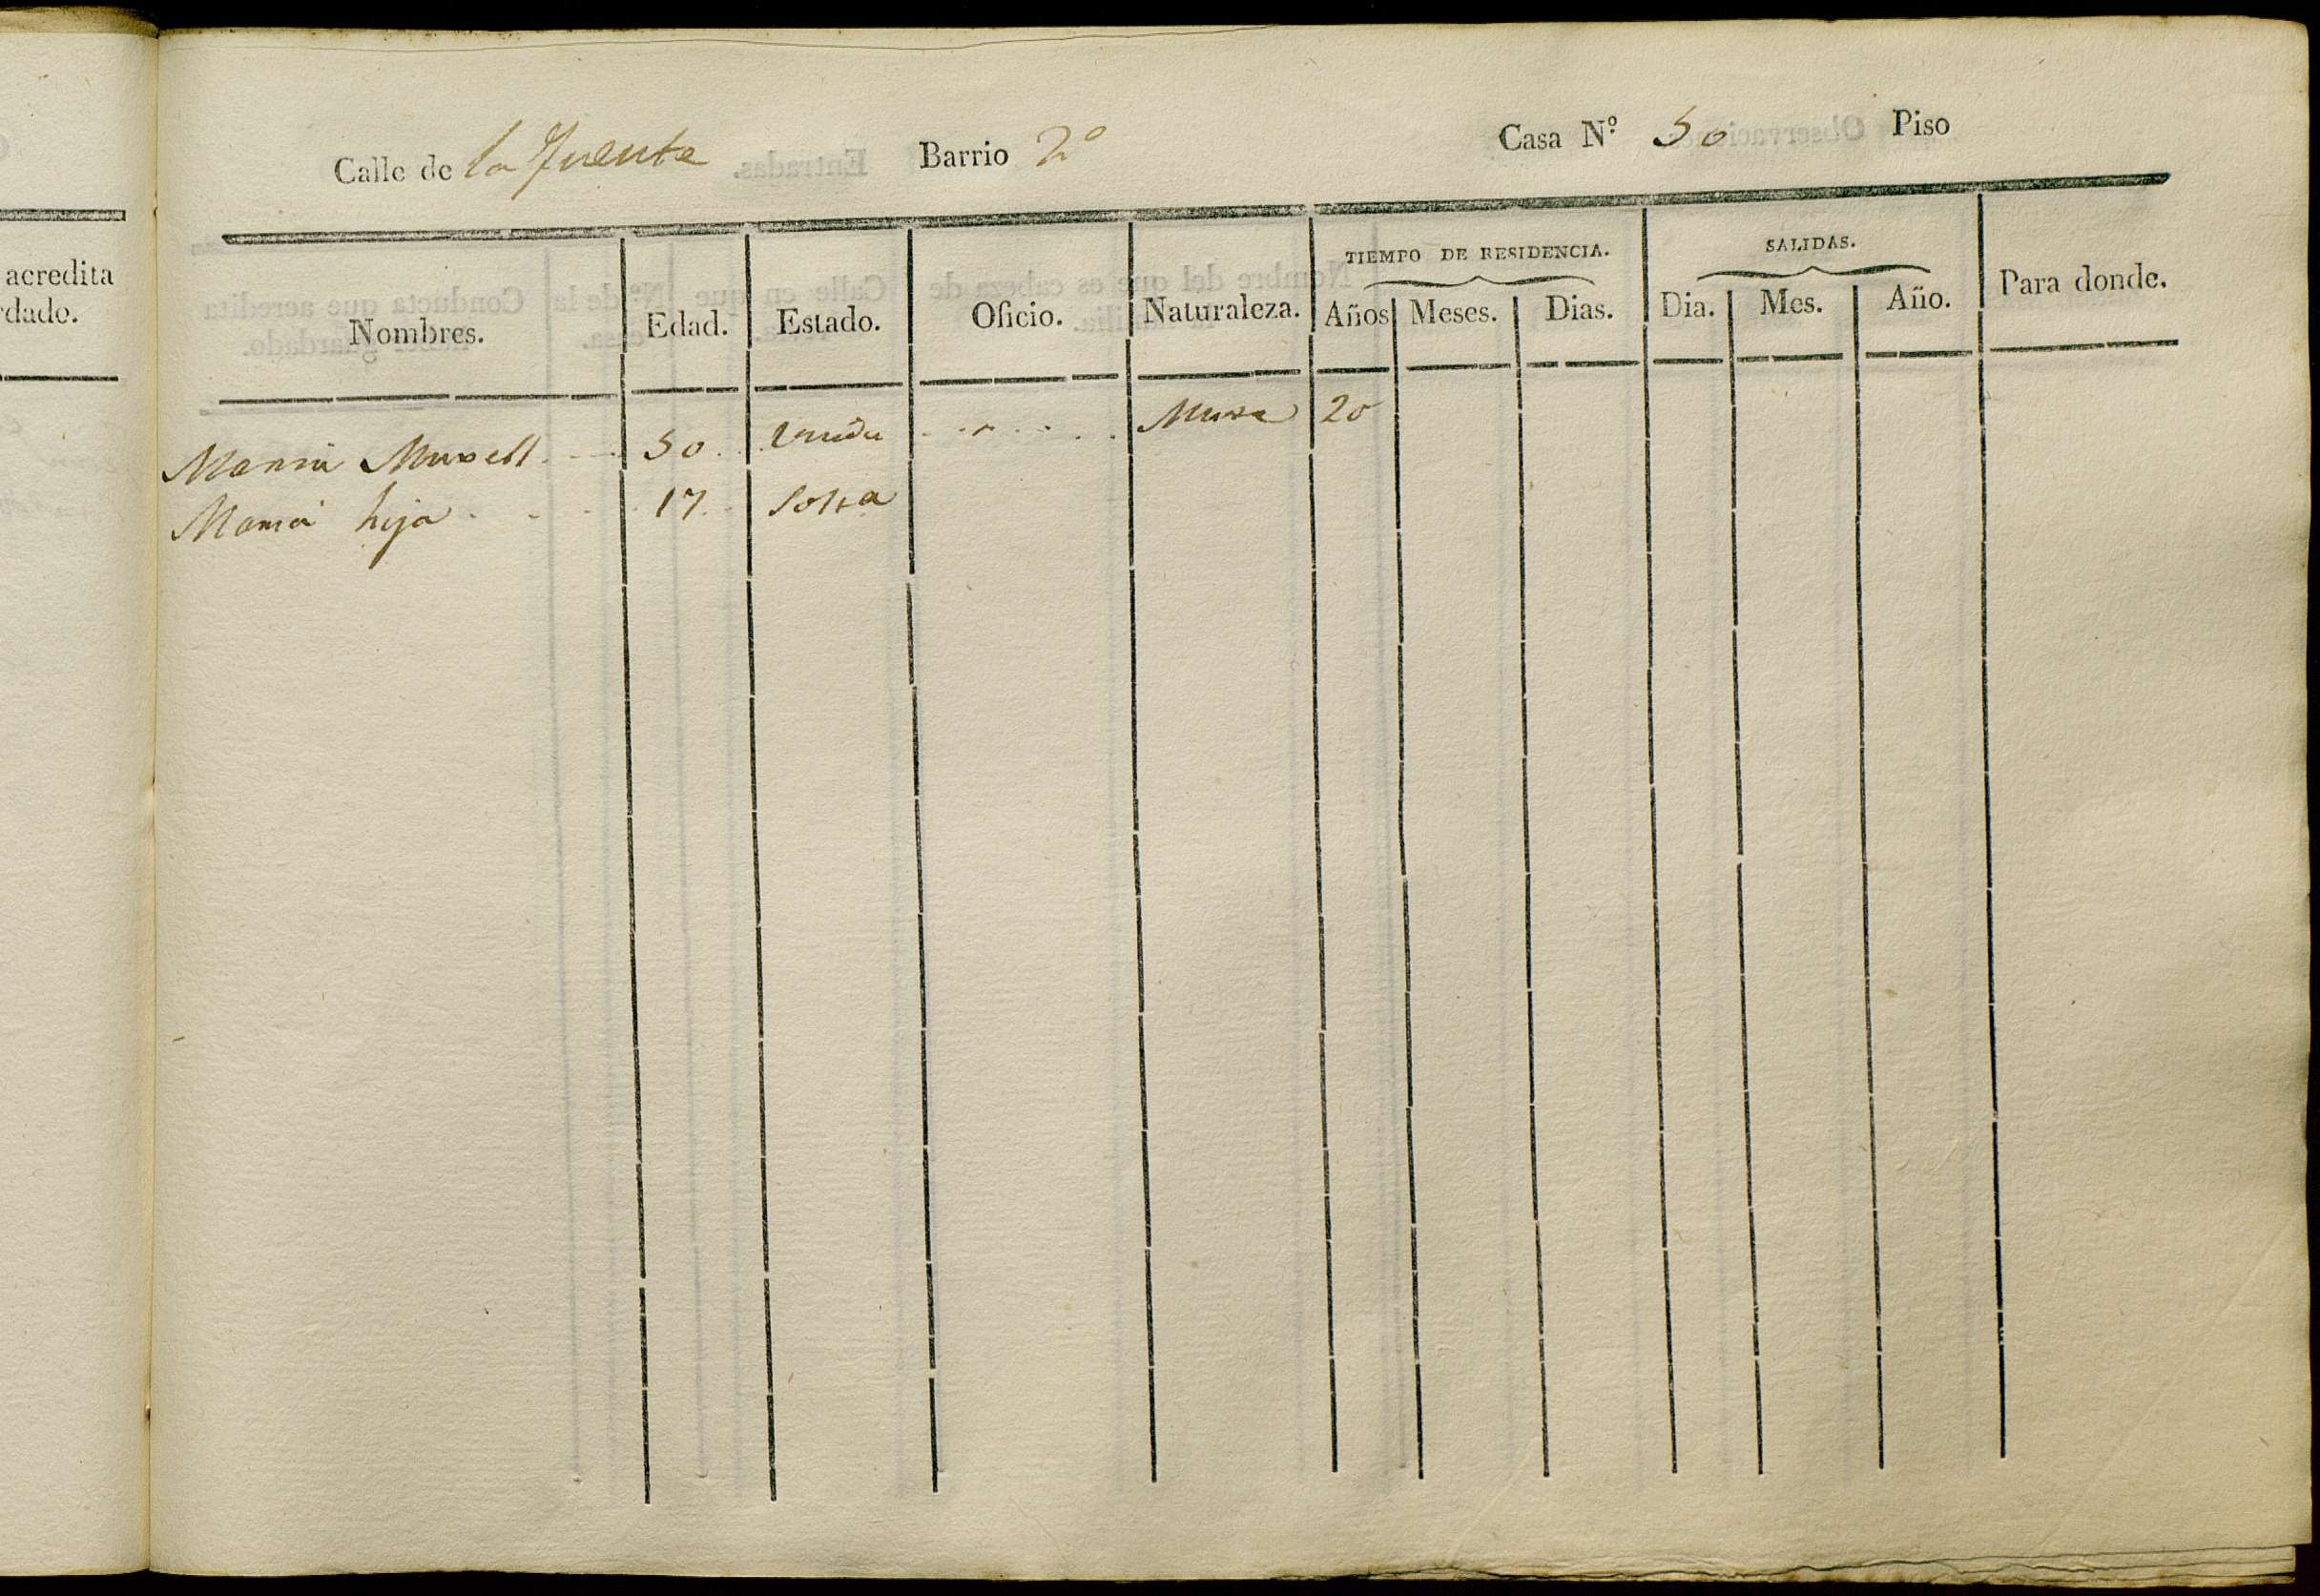 acredita
dado.
Calle de la Fuente Barrio 2º Casa Nº 50 Piso
Nombres. Edad. Estado. Oficio. Naturaleza. TIEMPO DE RESIDENCIA. Años Meses. Dias. SALIDAS. Dia. Mes. Año. Para donde.
Maria Muxell 50 Viuda 20
Maria hija 17 Solta